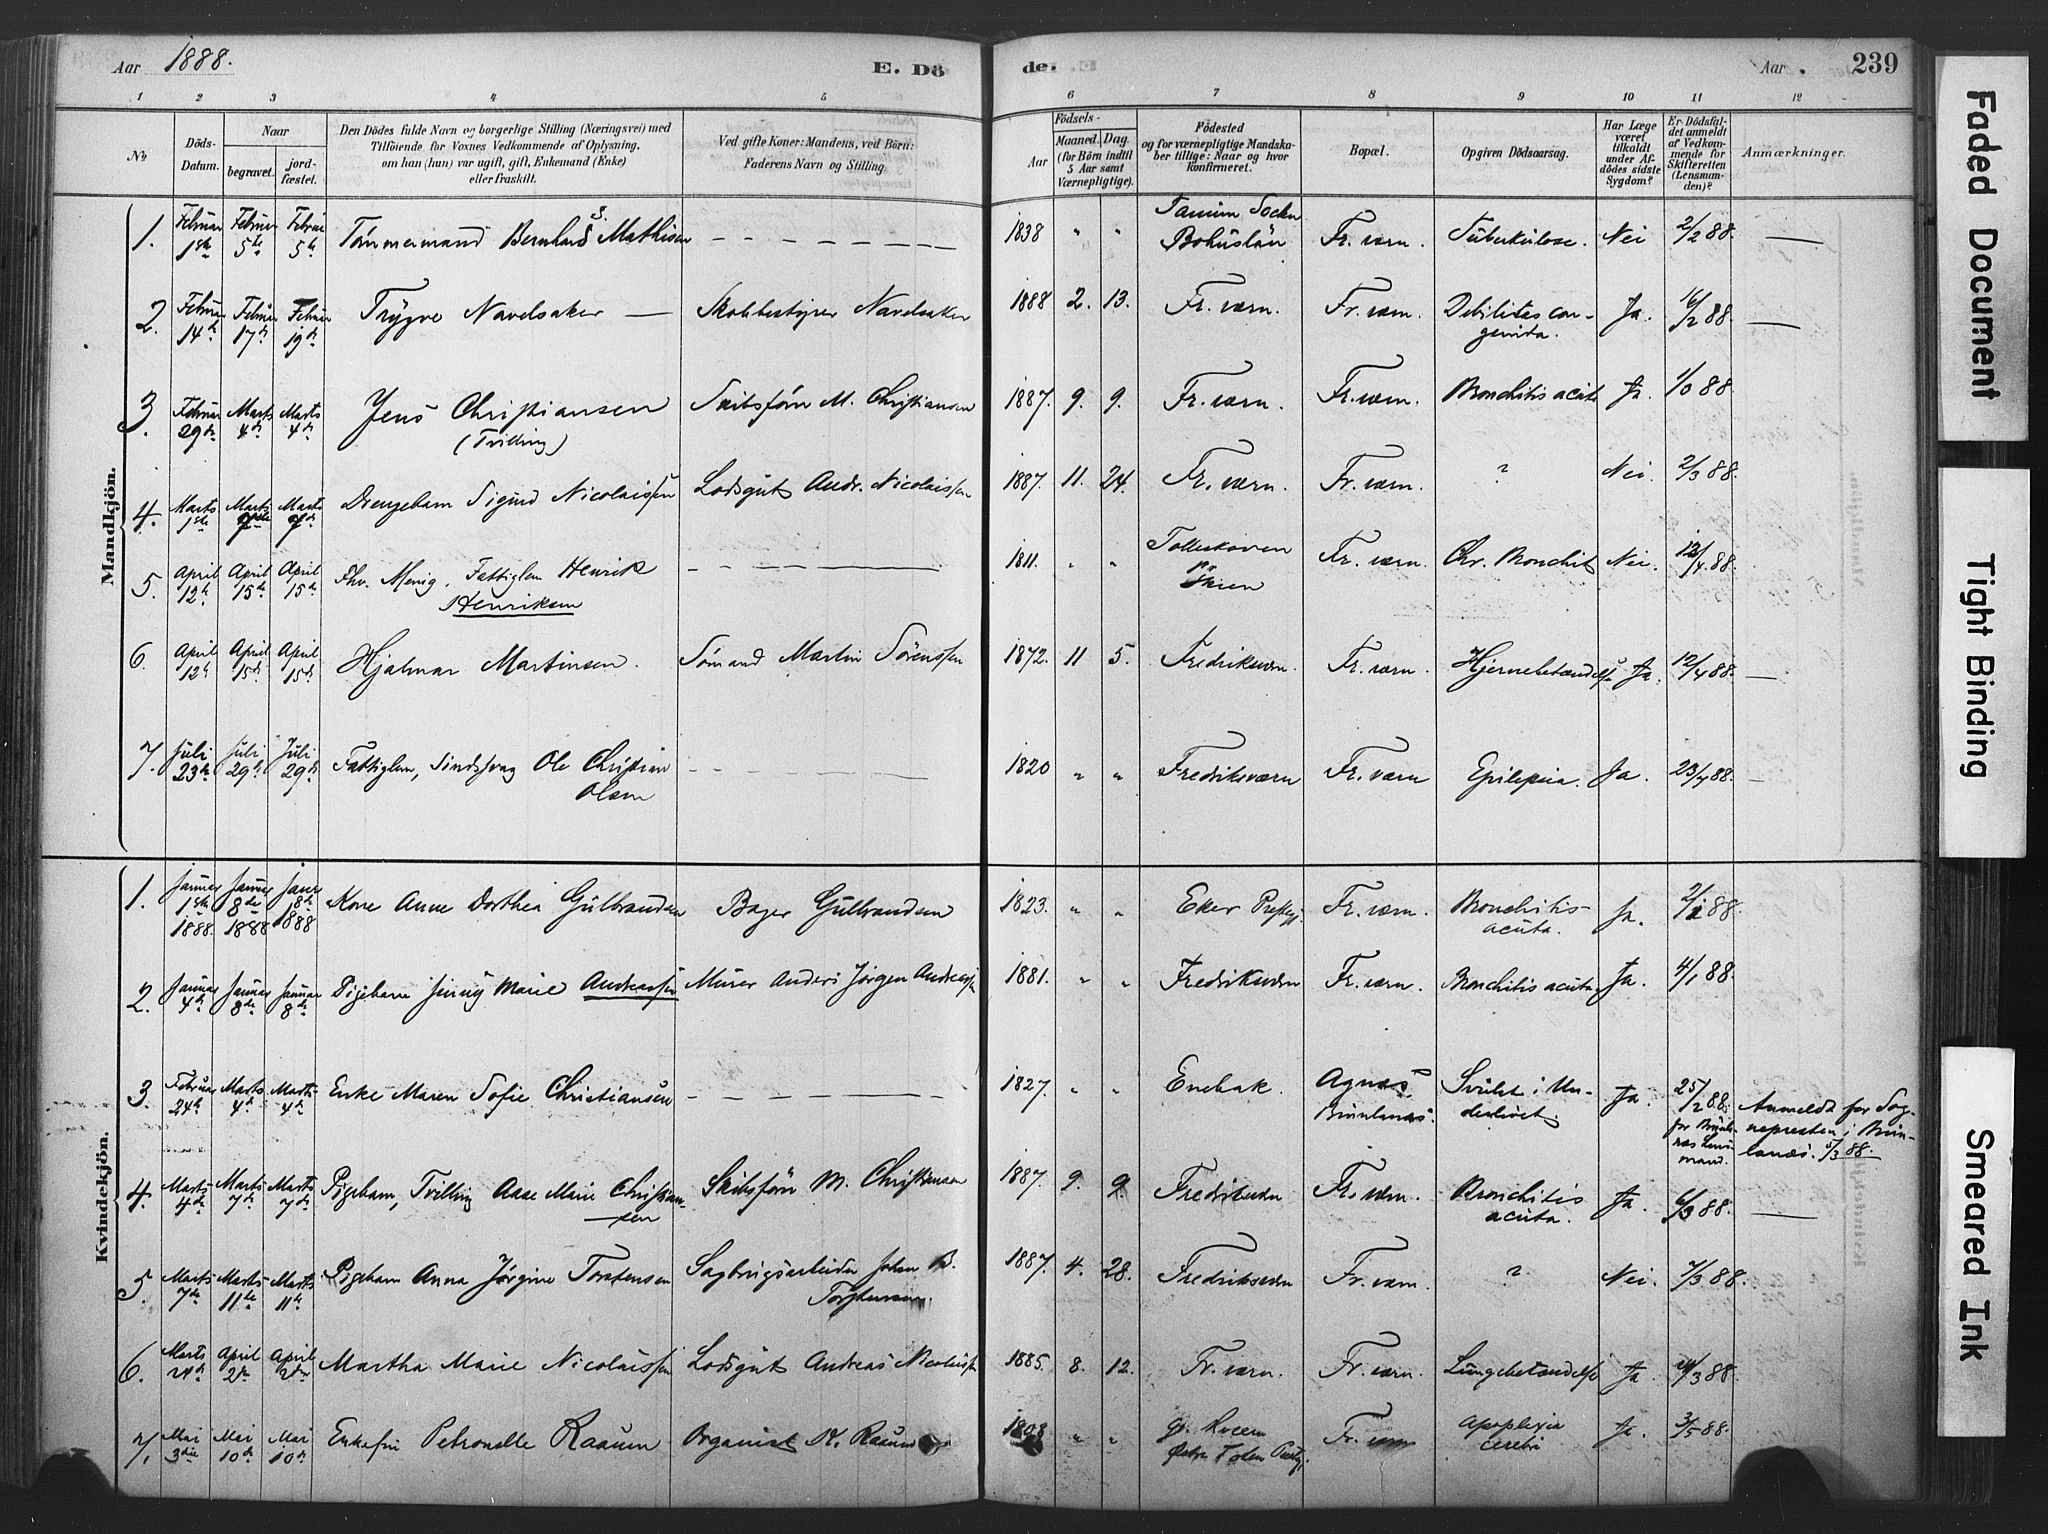 Aar 1888.
E. Dö
de.
Aar
239
1 2 3 4 5 6 7 8 9 10 11 12
No
Döds-Datum.
Naar
begravet.
jord-fæstet.
Den Dödes fulde Navn og borgerlige Stilling (Næringsvei) med
Tilföiende for Voxnes Vedkommende af Oplysning,
om han (hun) var ugift, gift, Enkemand (Enke)
eller fraskilt.
Ved gifte Koner: Mandens, ved Börn:
Faderens Navn og Stilling.
Födsels-
Aar
Maaned. Dag.
(for Börn indtil
5 Aar samt
Værnepligtige).
Födested
og for værnepligtige Mandska-
ber tillige: Naar og hvor
konfirmeret.
Bopæl.
Opgiven Dödsaarsag.
Har Læge
været
tilkaldt
under Af-
dödes sidste
Sygdom?
Er Dödsfal-
det anmeldt
af Vedkom-
mende for
Skifteretten
(Lensman-
den)?
Anmærkninger.
Mandkjön.
1. Februar 1ste Februar 5te Februar 5te Tømmermand Bernhard S. Mathisen 1838 " " Tanum Sockn Bohuslän Fr. værn. Tuberkulose. Nei 2/2 88.
2. Februar 14de Februar 17de Februar 19de Trygve Navelsaker Skolebestyrer Navelsaker 1888 2. 13. Fr. værn. Fr. værn. Debilitas con-
genita. Ja. 16/2 88.
3. Februar 29de Marts 4de Marts 4de Jens Christiansen
(Tvilling) Skibsfører M. Christiansen 1887. 9. 9. Fr. værn. Fr. værn. Bronchitis acuta Ja. 1/3 88.
4. Marts 1ste Marts 7de Marts 7de Drengebarn Sigurd Nicolaissen Lodsgut Andr. Nicolaissen 1887. 11. 24. Fr. værn. Fr. værn. ? Nei. 2/3 88.
5. April 12te April 15de April 15de Fhv. Menig, Fattiglem Henrik
Henriksen 1811. " " Fr. værn. Chr. Bronchit Nei. 12/4 88.
6. April 12te April 15de April 15de Hjalmar Martinsen. Sømand Martin Sörenssen 1872. 11 5. Fredriksværn. Fr. værn. Hjernebetændelse Ja. 12/4 88.
7. Juli 23de Juli 29de Juli 29de Fattiglem, Sindssvag Ole Christian
Olsen 1820 " " Fredriksværn Fr. værn Epilepsia. Ja. 23/7 88.
Kvindekjön.
1. Januar 1ste 1888. Januar 8de 1888 Januar 8de 1888 Kone Anne Dorthea Gulbrandsen Bager Gulbrandsen 1823. " " Eker Prestegj. Fr. værn. Bronchitis
acuta. Ja. 2/1 88.
2. Januar 4de Januar 8de Januar 8de Pigebarn Jenny Marie Andreassen Murer Anders Jørgen Andreassen 1881. " " Fredriksværn Fr. værn. Bronchitis acuta. Ja. 4/1 88.
3. Februar 24de Marts 4de Marts 4de Enke Maren Sofie Christiansen 1827. " " Enebak. Agnæs,
Brunlanæs. Svulst i Un-
derlivet. Ja. 25/2 88.
for Brunla-
næs Lens-
mand. Anmeldt for Sog-
nepresten i Brun-
lanæs. 5/3 88.
4. Marts 4de Marts 7de Marts 7de Pigebarn, Tvilling Aase Marie Christian-
sen Skibsfører M. Christiansen 1887. 9. 9. Fredriksværn Fr. værn. Bronchitis
acuta. Ja. 6/3 88.
5. Marts 7de Marts 11te Marts 11te Pigebarn Anna Jørgine Torstensen Sagbrugsarbeider Johan B.
Torstensen. 1887. 4. 28. Fredriksværn Fr. værn. ? Nei. 7/3 88.
6. Marts April 2den April 2den Martha Marie Nicolaissen Lodsgut Andreas Nicolaissen 1885. 8. 12. Fr. værn. Fr. værn. Lungebetændelse Ja.
7. Mai 3die Mai 10de Mai 10de Enkefru Petronelle Raaum Organist K. Raaum 1808 " " Østre Toten Prestegj. Fr. værn Apoplexia
cerebri Ja. 3/5 88.
Faded Document
Tight Binding
Smeared Ink